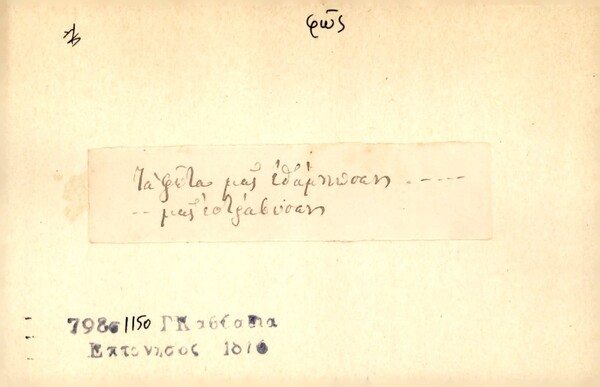 φῶς
Τὰ φῶτα μᾶς ἐθάμπωσαν . - - - -
- - μᾶς ἐστράβωσαν
798 1150 Γ Κασίσια
Επτάνησος 1876